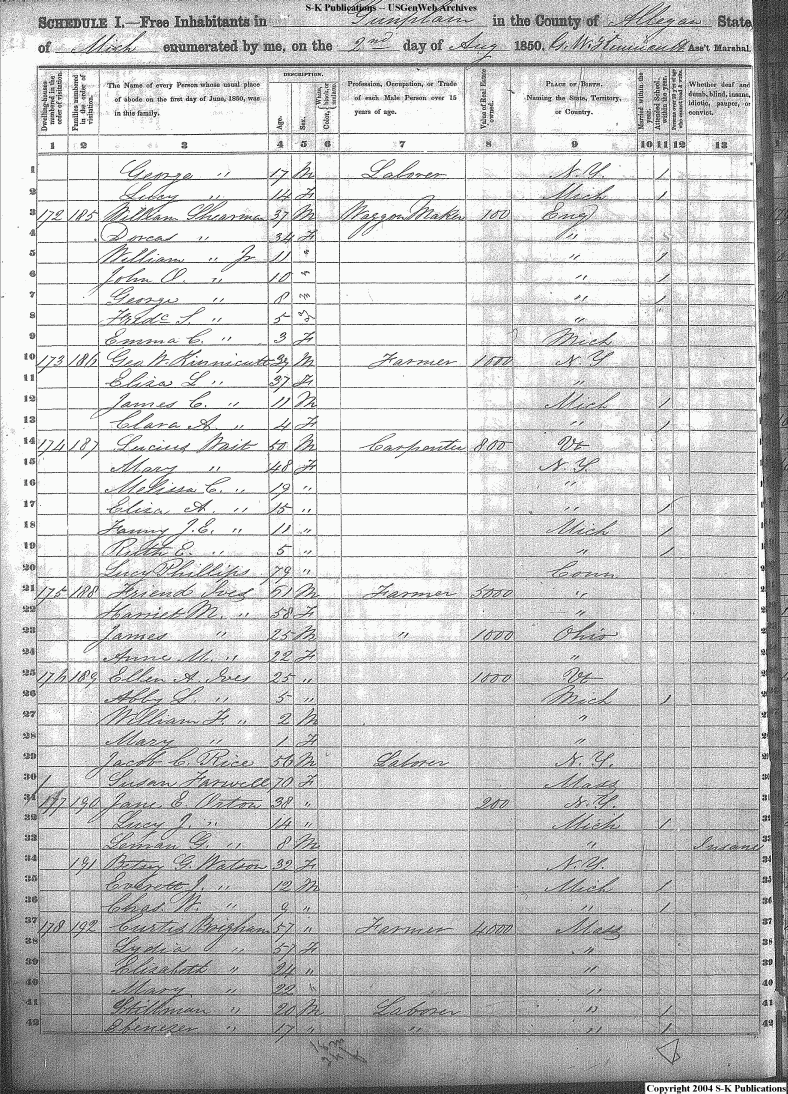 S-K Publications – USGenWeb Archives
SCHEDULE I.—Free Inhabitants in Gunplain in the County of Allegan State
of Mich enumerated by me, on the 2nd day of Aug 1850. G. W. Kinnicutt Ass't Marshal.
Dwelling-houses numbered in the order of visitation.
Families numbered in the order of visitation.
The Name of every Person whose usual place of abode on the first day of June, 1850, was in this family.
DESCRIPTION.
Age.
Sex.
Color, White, black, or mulatto.
Profession, Occupation, or Trade of each Male Person over 15 years of age.
Value of Real Estate owned.
PLACE OF BIRTH. Naming the State, Territory, or Country.
Married within the year.
Attended School within the year.
Persons over 20 y'rs of age who cannot read & write.
Whether deaf and dumb, blind, insane, idiotic, pauper, or convict.
1 2 3 4 5 6 7 8 9 10 11 12 13
1 George " 17 M Laborer N.Y. / 1
2 Lucy " 14 F Mich / 2
3 172 185 William Shearman 37 M Waggon Maker 100 Eng 3
4 Dorcas " 34 F " 4
5 William " Jr 11 " " / 5
6 John O. " 10 " " / 6
7 George " 8 " " / 7
8 Fredc S. " 5 " " 8
9 Emma C. " 3 F Mich 9
10 173 186 Geo W. Kinnicutt 39 M Farmer 1000 N.Y 10
11 Eliza L " 37 F " 11
12 James C. " 11 M Mich / 12
13 Clara A. " 4 F " / 13
14 174 187 Lucius Wait 50 M Carpenter 800 Vt 14
15 Mary " 48 F N.Y. 15
16 Melissa C. " 19 " " 16
17 Eliza A. " 15 " " / 17
18 Fanny J.E. " 11 " Mich / 18
19 Ruth E. " 5 " " / 19
20 Lucy Phillips 79 " Conn 20
21 175 188 Friend Ives 61 M Farmer 5000 " 21
22 Harriet M. " 58 F " 22
23 James " 25 M " 1000 Ohio 23
24 Anne M. " 22 F " 24
25 176 189 Ellen A. Ives 25 " 1000 Vt 25
26 Abby L. " 5 " Mich / 26
27 William F. " 2 M " 27
28 Mary " 1 F " 28
29 Jacob C. Rice 56 M Laborer N.Y. 29
30 Susan Farwell 70 F Mass 30
31 177 190 Jane E. Orton 38 " 200 N.Y. 31
32 Lucy J. " 14 " Mich / 32
33 Leman G. " 8 M " Insane 33
34 191 Betsy G. Watson 32 F N.Y. 34
35 Everett J. " 12 M Mich / 35
36 Chas. W. " 9 " " / 36
37 178 192 Curtis Brigham 57 " Farmer 4000 Mass 37
38 Lydia " 57 F " 38
39 Elizabeth " 24 " " 39
40 Mary " 22 " " 40
41 Stillman " 20 M Laborer " / 41
42 Ebenezer " 17 " " " / 42
Copyright 2004 S-K Publications